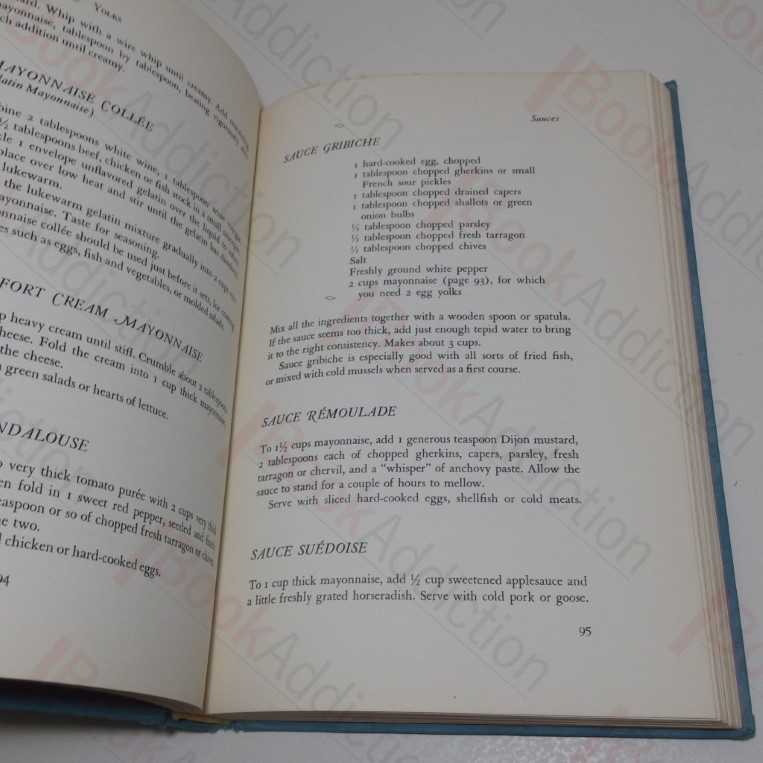 Yolks
ard. Whip with a wire whip until creamy. Add
mayonnaise, tablespoon by tablespoon, beating vigorously after
ch addition until creamy.
MAYONNAISE COLLÉE
latin Mayonnaise)
bine 2 tablespoons white wine, 1 tablespoon wine
½ tablespoons beef, chicken or fish stock in a small
kle 1 envelope unflavored gelatin over the liquid to
place over low heat and stir until the gelatin has dissolved
lukewarm.
the lukewarm gelatin mixture gradually into 2 cups
ayonnaise. Taste for seasoning.
onnaise collée should be used just before it sets, for coating
es such as eggs, fish and vegetables, or molded salads.
FORT CREAM MAYONNAISE
p heavy cream until stiff. Crumble about 2 tablespoons
cheese. Fold the cream into 1 cup thick mayonnaise,
the cheese.
green salads or hearts of lettuce.
NDALOUSE
very thick tomato purée with 2 cups very thick
en fold in 1 sweet red pepper, seeded and
easpoon or so of chopped fresh tarragon or chives,
e two.
chicken or hard-cooked eggs.
94
Sauces
SAUCE GRIBICHE
1 hard-cooked egg, chopped
1 tablespoon chopped gherkins or small
French sour pickles
1 tablespoon chopped drained capers
1 tablespoon chopped shallots or green
onion bulbs
½ tablespoon chopped parsley
½ tablespoon chopped fresh tarragon
½ tablespoon chopped chives
Salt
Freshly ground white pepper
2 cups mayonnaise (page 93), for which
you need 2 egg yolks
Mix all the ingredients together with a wooden spoon or spatula.
If the sauce seems too thick, add just enough tepid water to bring
it to the right consistency. Makes about 3 cups.
Sauce gribiche is especially good with all sorts of fried fish,
or mixed with cold mussels when served as a first course.
SAUCE RÉMOULADE
To 1½ cups mayonnaise, add 1 generous teaspoon Dijon mustard,
2 tablespoons each of chopped gherkins, capers, parsley, fresh
tarragon or chervil, and a "whisper" of anchovy paste. Allow the
sauce to stand for a couple of hours to mellow.
Serve with sliced hard-cooked eggs, shellfish or cold meats.
SAUCE SUÉDOISE
To 1 cup thick mayonnaise, add ½ cup sweetened applesauce and
a little freshly grated horseradish. Serve with cold pork or goose.
95
BookAddiction